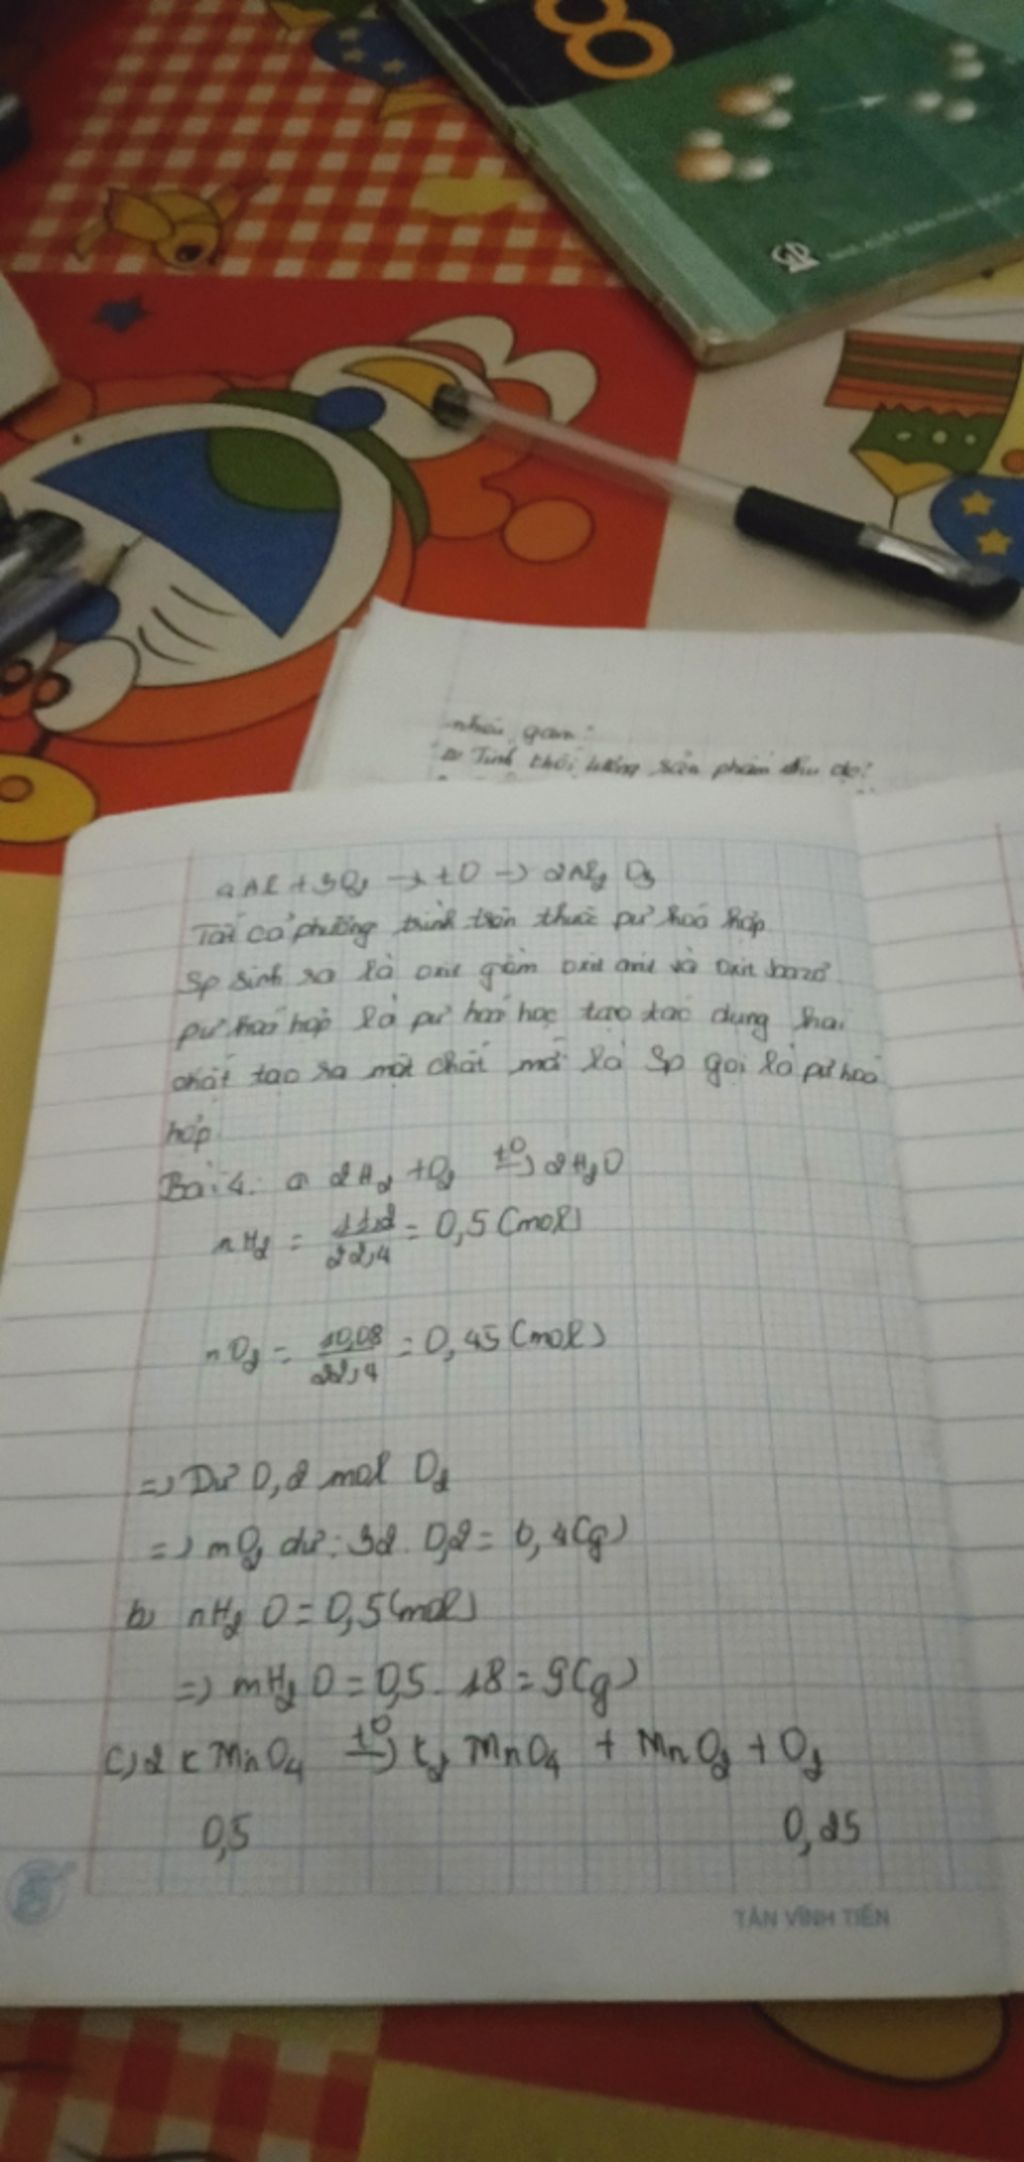 8
nhiêu gam?
b) Tính khối lượng sản phẩm thu đc?
4Al + 3O2 → t0 → 2Al2 O3
Tất cả phương trình trên thuộc pứ hoá hợp
Sp sinh ra là oxit gồm oxit axit và oxit bazơ
pứ hoá hợp là pứ hoá học tạo tác dụng hai
chất tạo ra một chất mới là Sp gọi là pứ hoá
hợp
Bài 4: a 2H2 + O2 t0→ 2H2O
nH2 = 11,2/22,4 = 0,5 (mol)
nO2 = 10,08/22,4 = 0,45 (mol)
=> Dư 0,2 mol O2
=> mO2 dư: 32. 0,2 = 6,4(g)
b) nH2 O = 0,5(mol)
=> mH2 O = 0,5. 18 = 9(g)
c) 2 K MnO4 t0→ K2 MnO4 + MnO2 + O2
0,5 0,25
TÂN VĨNH TIẾN